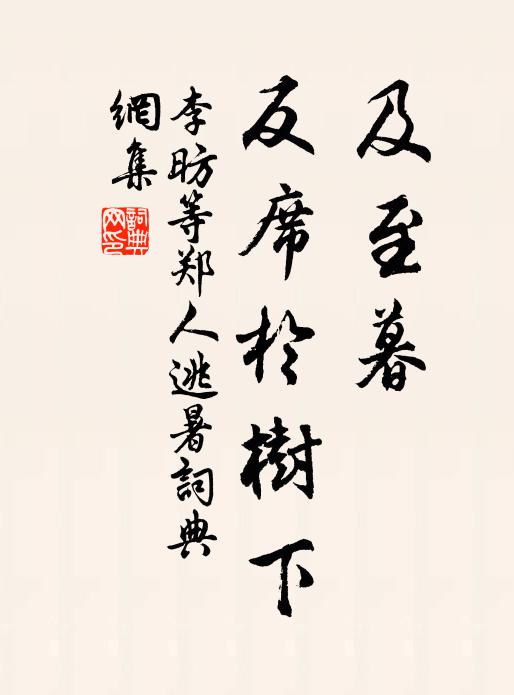 及至暮
反席於樹下
李昉等郑人逃暑詞典
網集
詞典
网印